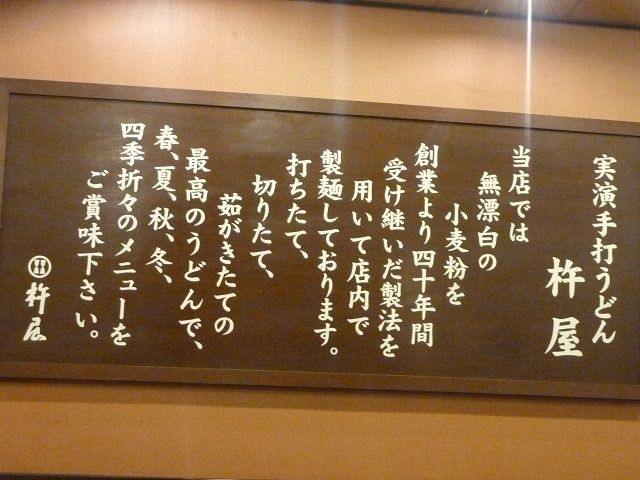 実演手打うどん
杵屋
当店では
無漂白の
小麦粉を
創業より四十年間
受け継いだ製法を
用いて店内で
製麺しております。
打ちたて、
切りたて、
茹がきたての
最高のうどんで、
春、夏、秋、冬、
四季折々のメニューを
ご賞味下さい。
杵屋